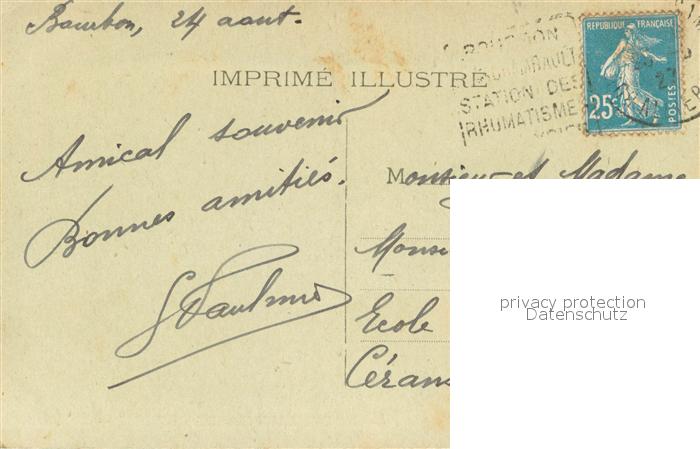 Bourbon, 24 aout.
BOURBON
STATION DES
RHUMATISME
REPUBLIQUE FRANÇAISE
25c
POSTES
IMPRIMÉ ILLUSTRÉ
Amical souvenir
Bonnes amitiés.
Monsieur et Madame
Monsi
Ecole
Céran
privacy protection
Datenschutz